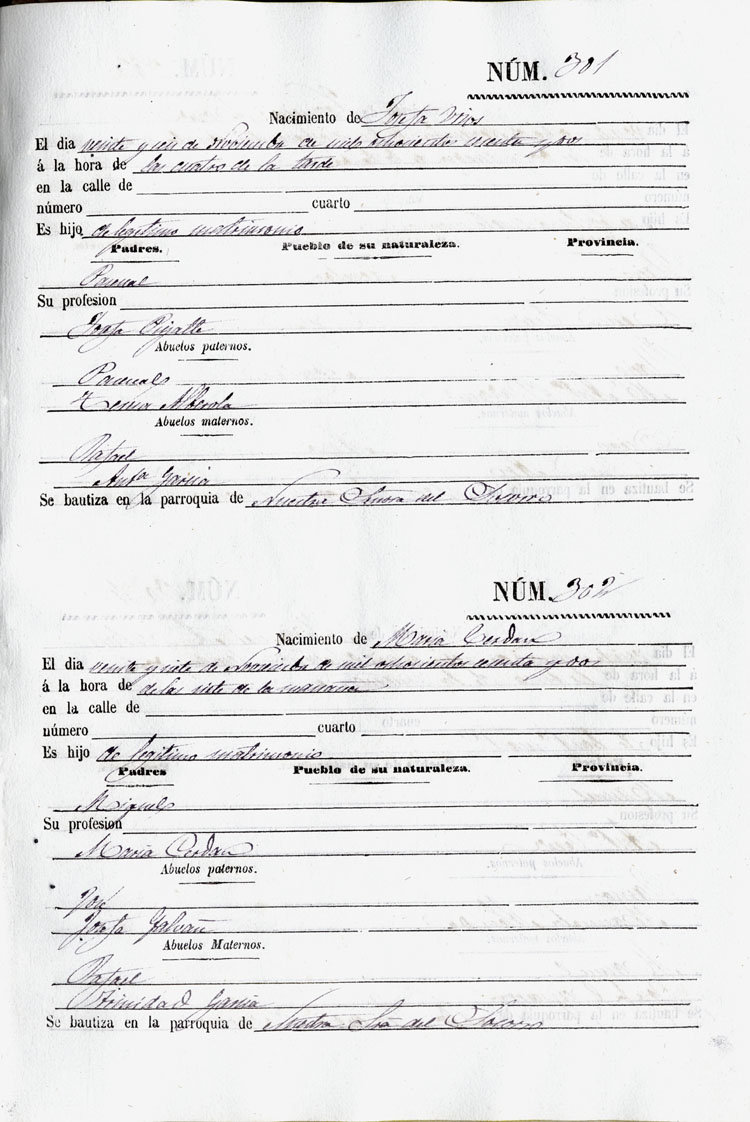 NÚM. 301
Nacimiento de Josefa
El dia veinte y seis de Noviembre de mil ochocientos sesenta y dos
á la hora de las cuatro de la tarde
en la calle de
número cuarto
Es hijo de legitimo matrimonio
Padres. Pueblo de su naturaleza. Provincia.
Pascual
Su profesion
Josefa
Abuelos paternos.
Pascual
Alberola
Abuelos maternos.
Rafael
Antª Garcia
Se bautiza en la parroquia de Nuestra Señora del Socorro
NÚM. 302
Nacimiento de Maria Cerdan
El dia veinte y siete de Noviembre de mil ochocientos sesenta y dos
á la hora de de las siete de la mañana
en la calle de
número cuarto
Es hijo de legitimo matrimonio
Padres Pueblo de su naturaleza. Provincia.
Miguel
Su profesion
Maria Cerdan
Abuelos paternos.
José
Josefa Galvañ
Abuelos Maternos.
Rafael
Trinidad Garcia
Se bautiza en la parroquia de Nuestra Srª del Socorro